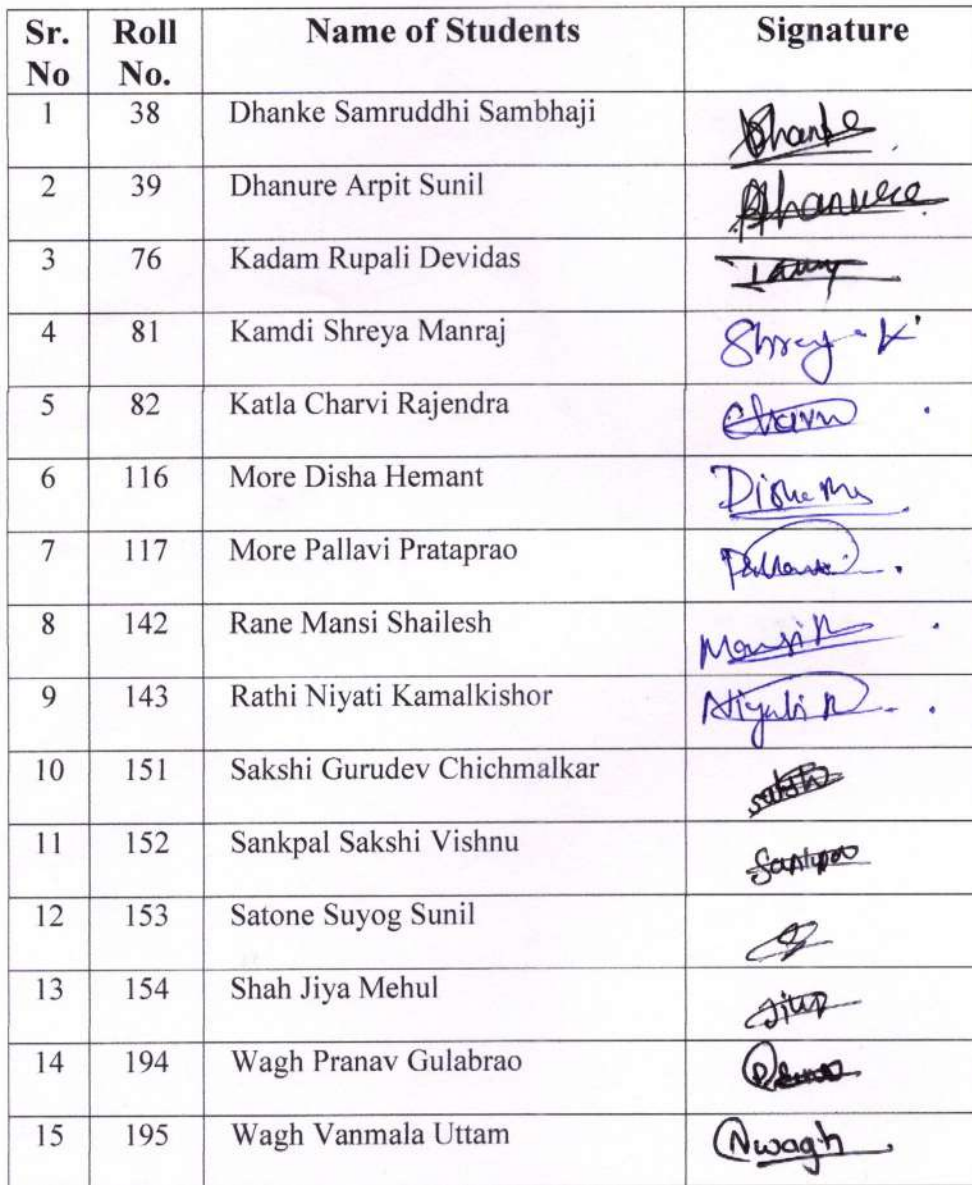 Sr. No Roll No. Name of Students Signature
1 38 Dhanke Samruddhi Sambhaji Dhanke
2 39 Dhanure Arpit Sunil Dhanure
3 76 Kadam Rupali Devidas
4 81 Kamdi Shreya Manraj Shreya K
5 82 Katla Charvi Rajendra Charvi
6 116 More Disha Hemant Disha
7 117 More Pallavi Prataprao Pallavi
8 142 Rane Mansi Shailesh Mansi R
9 143 Rathi Niyati Kamalkishor Niyati R
10 151 Sakshi Gurudev Chichmalkar Sakshi
11 152 Sankpal Sakshi Vishnu
12 153 Satone Suyog Sunil
13 154 Shah Jiya Mehul Jiya
14 194 Wagh Pranav Gulabrao
15 195 Wagh Vanmala Uttam Wagh